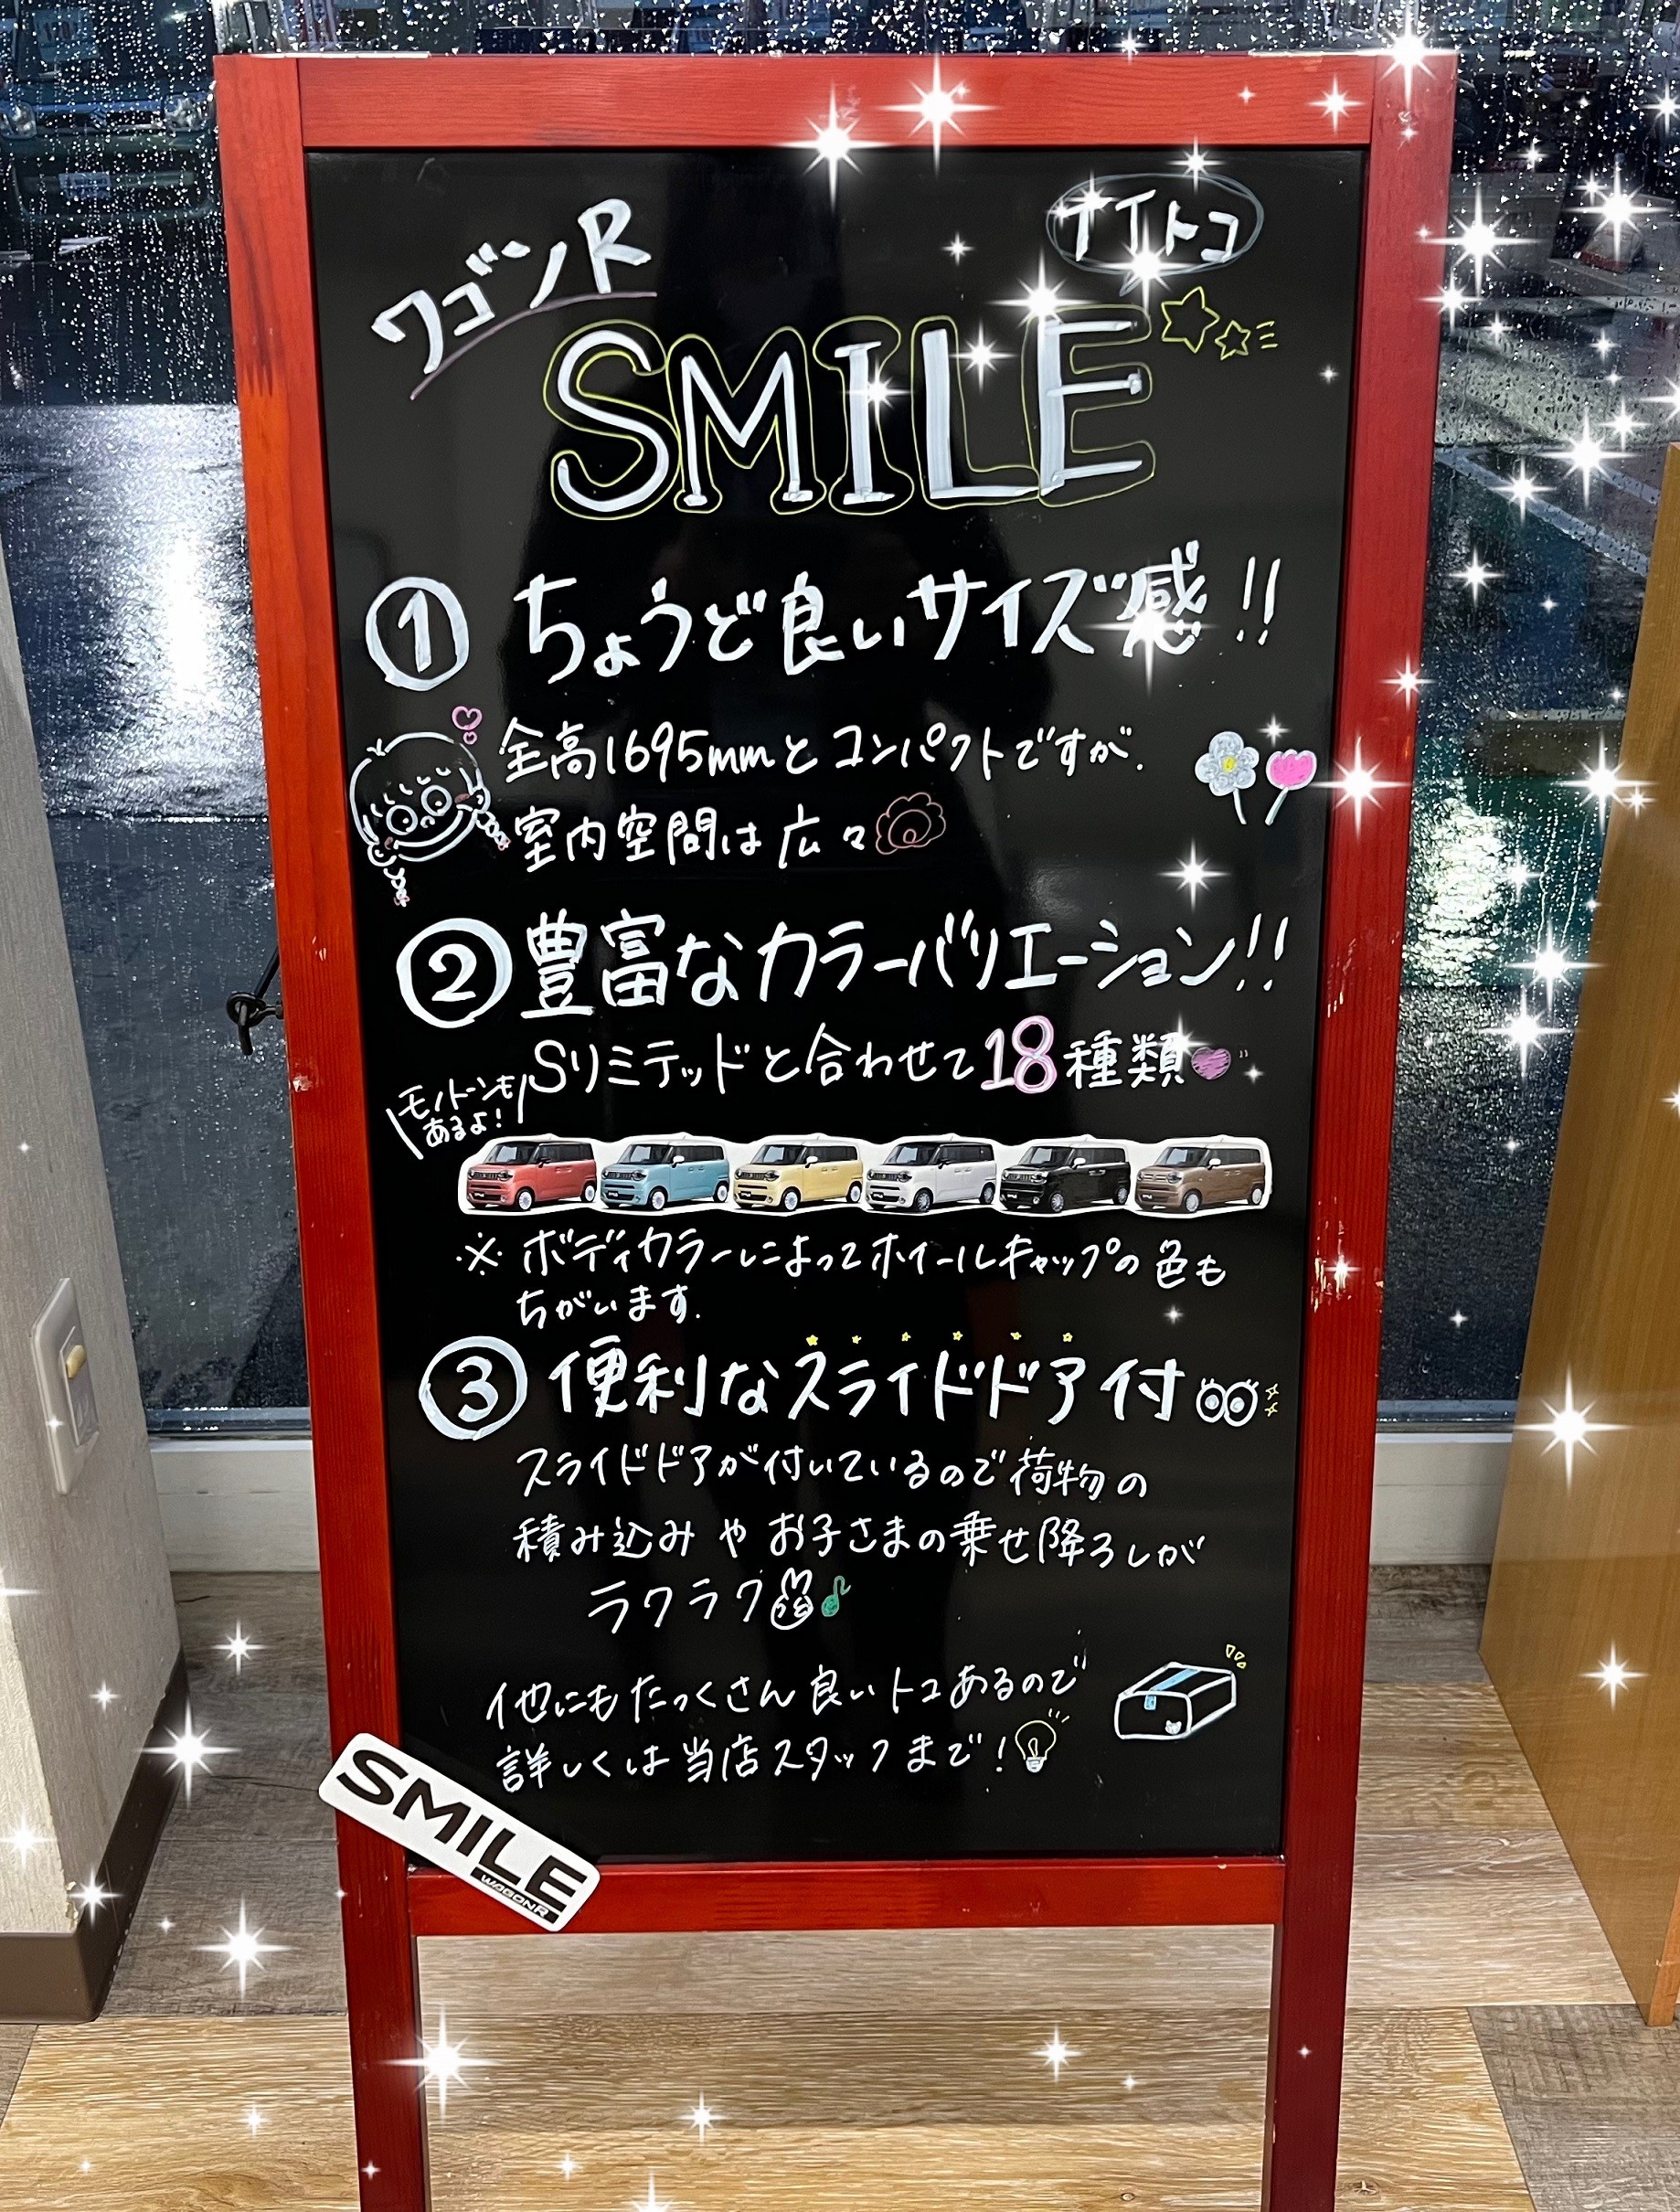 ワゴンR
イイトコ
SMILE
① ちょうど良いサイズ感!!
全高1695mmとコンパクトですが.
室内空間は広々
② 豊富なカラーバリエーション!!
Sリミテッドと合わせて18種類
モノトーンも
あるよ!
※ボディカラーによってホイールキャップの色も
ちがいます.
③ 便利なスライドドア付
スライドドアが付いているので荷物の
積み込みやお子さまの乗せ降ろしが
ラクラク
他にもたっくさん良いトコあるので
詳しくは当店スタッフまで!
SMILE
WAGONR